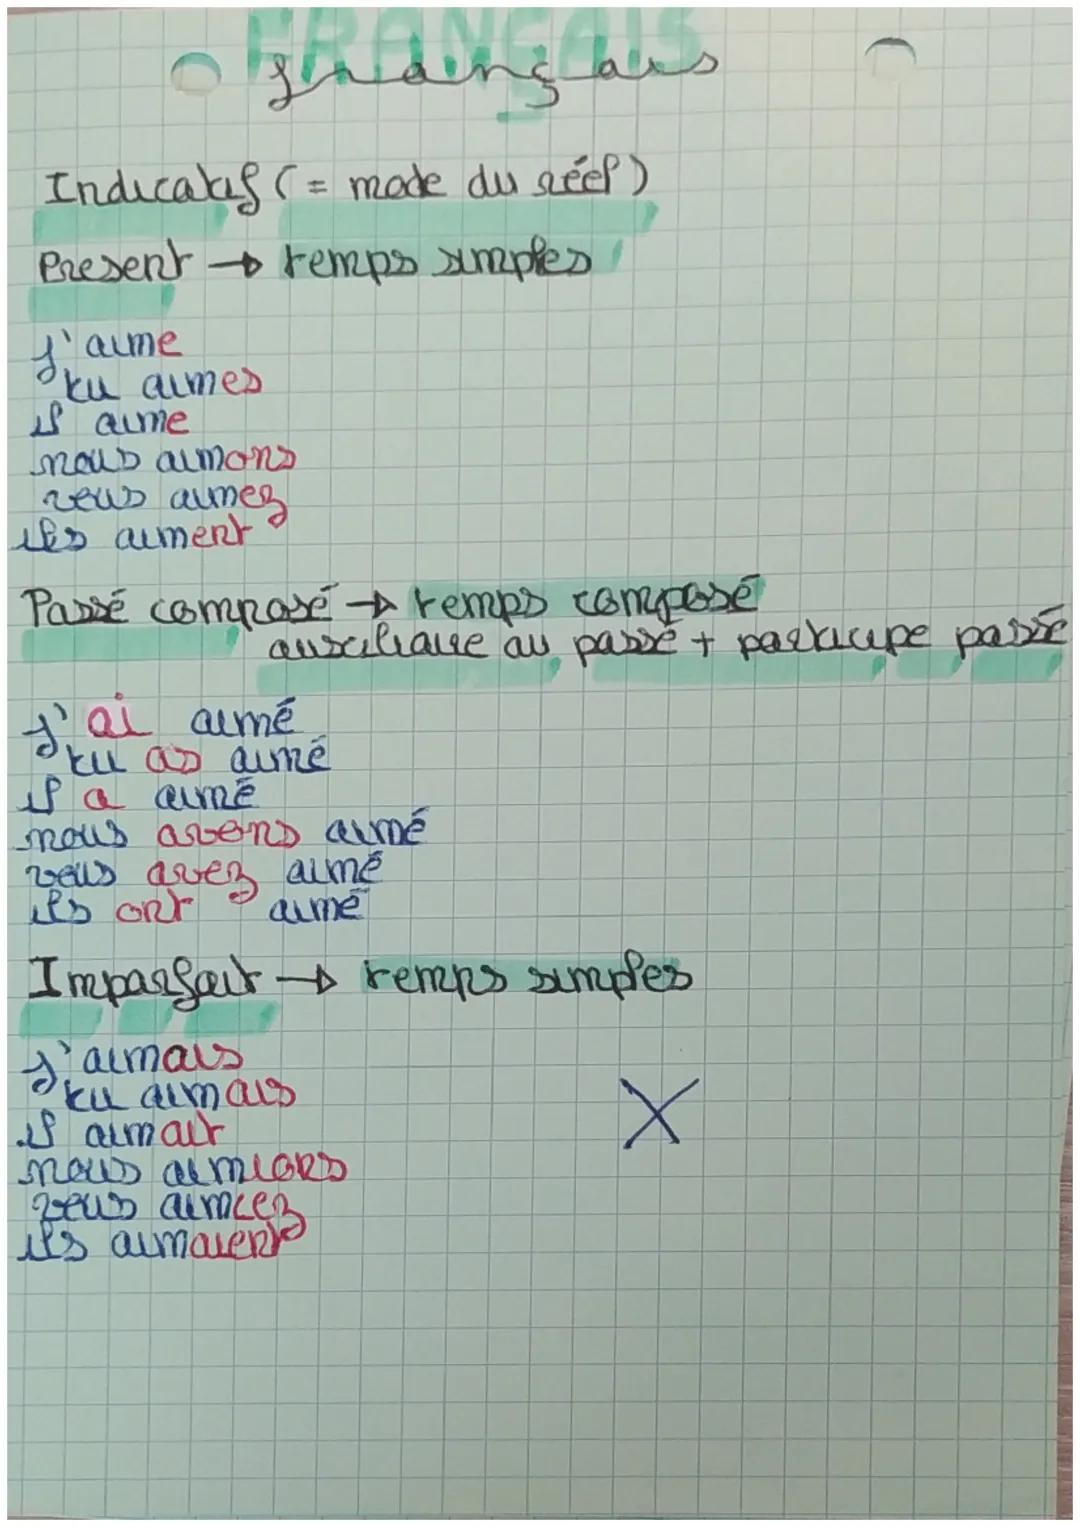 FRANÇAIS
français
Indicatif (= mode du réel)
Present → temps simples
j'aime
tu aimes
il aime
nous aimons
vous aimez
ils aiment
Passé composé → temps composé
auxiliaire au passé + participe passé
j'ai aimé
tu as aimé
il a aimé
nous avons aimé
vous avez aimé
ils ont aimé
Imparfait → temps simples
j'aimais
tu aimais
il aimait
nous aimions
vous aimiez
ils aimaient